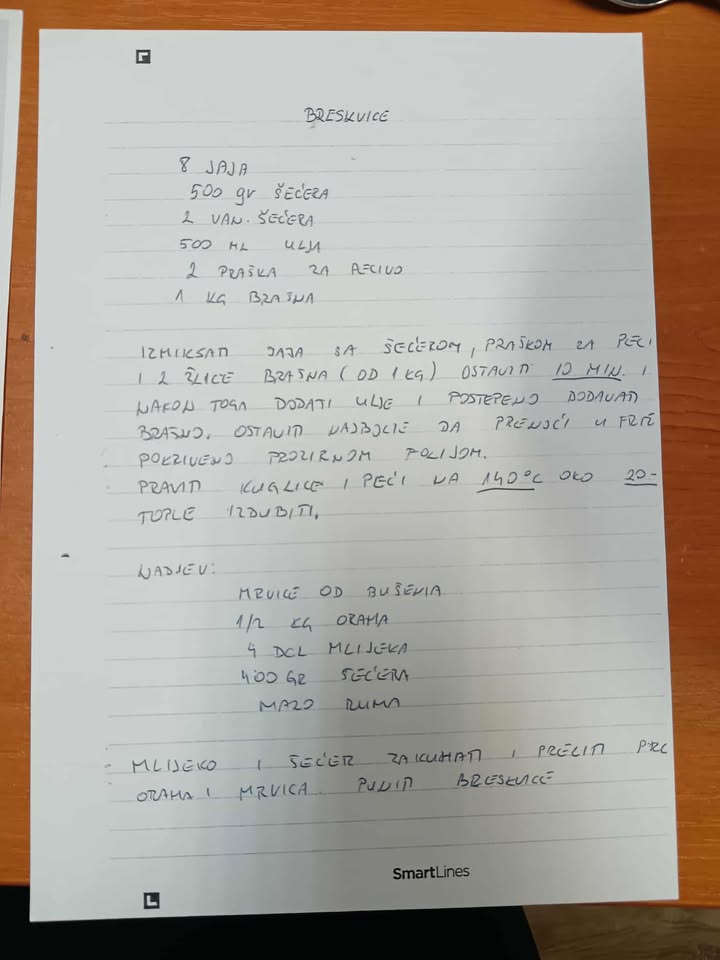 BRESKVICE
8 JAJA
500 gr ŠEĆERA
2 VAN. ŠEĆERA
500 ML ULJA
2 PRAŠKA ZA PECIVO
1 KG BRAŠNA
IZMIKSATI JAJA SA ŠEĆEROM, PRAŠKOM ZA PECI
I 2 ŽLICE BRAŠNA (OD 1 KG) OSTAVITI 10 MIN. I
NAKON TOGA DODATI ULJE I POSTEPENO DODAVATI
BRAŠNO. OSTAVITI NAJBOLJE DA PRENOĆI U FRIŽ
POKRIVENO PROZIRNOM FOLIJOM.
PRAVITI KUGLICE I PEĆI NA 140°C OKO 20-
TOPLE IZDUBITI.
NADJEV:
MRVICE OD BUŠENJA
1/2 KG ORAHA
4 DCL MLIJEKA
400 GR ŠEĆERA
MALO RUMA
MLIJEKO I ŠEĆER ZAKUHATI I PRELITI
ORAHA I MRVICA. PUNITI BRESKVICE
SmartLines